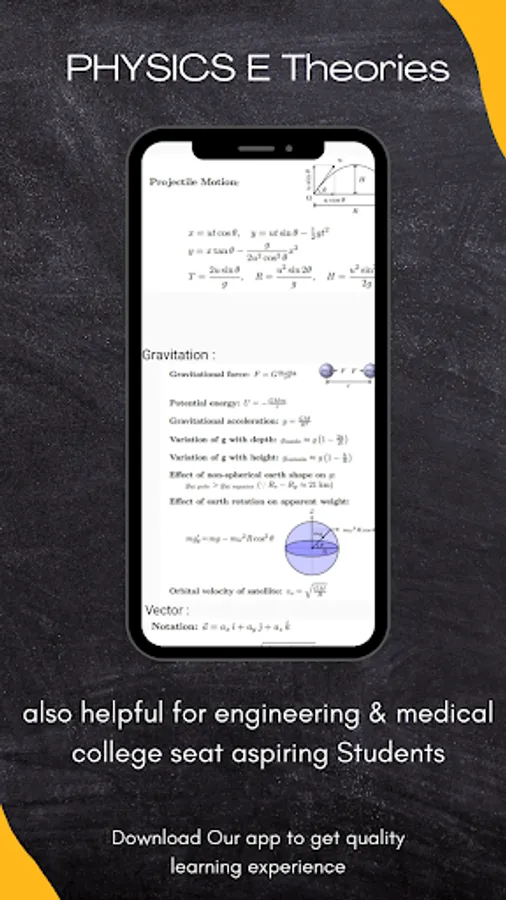 PHYSICS E Theories
Projectile Motion:
x = ut cos θ, y = ut sin θ − ½gt²
y = x tan θ − g/(2u² cos² θ) x²
T = 2u sin θ/g, R = u² sin 2θ/g, H = u² sin²/2g
Gravitation :
Gravitational force: F = G
Potential energy: U = −
Gravitational acceleration: g = GM/R²
Variation of g with depth: g
Variation of g with height: g
Effect of non-spherical earth shape on g:
g at pole > g at equator (∵ Rₑ − Rₚ ≈ 21 km)
Effect of earth rotation on apparent weight:
mg′θ = mg − mω²R cos² θ
Orbital velocity of satellite: vₒ = √
Vector :
Notation: a⃗ = aₓ î + aᵧ ĵ + a_z k̂
also helpful for engineering & medical
college seat aspiring Students
Download Our app to get quality
learning experience